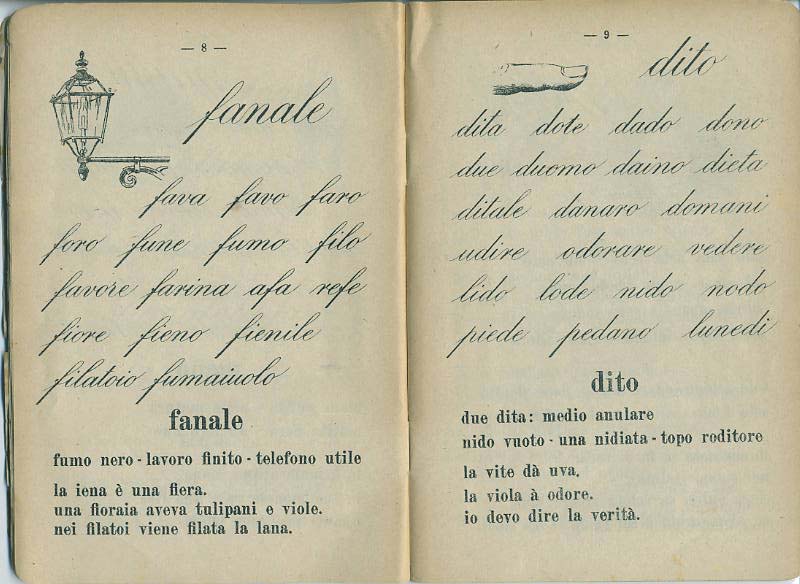 — 8 —
fanale
fava favo faro
foro fune fumo filo
favore farina afa refe
fiore fieno fienile
filatoio fumaiuolo
fanale
fumo nero - lavoro finito - telefono utile
la iena è una fiera.
una fioraia aveva tulipani e viole.
nei filatoi viene filata la lana.
— 9 —
dito
dita dote dado dono
due duomo daino dieta
ditale danaro domani
udire odorare vedere
lido lode nido nodo
piede pedano lunedì
dito
due dita: medio anulare
nido vuoto - una nidiata - topo roditore
la vite dà uva.
la viola à odore.
io devo dire la verità.